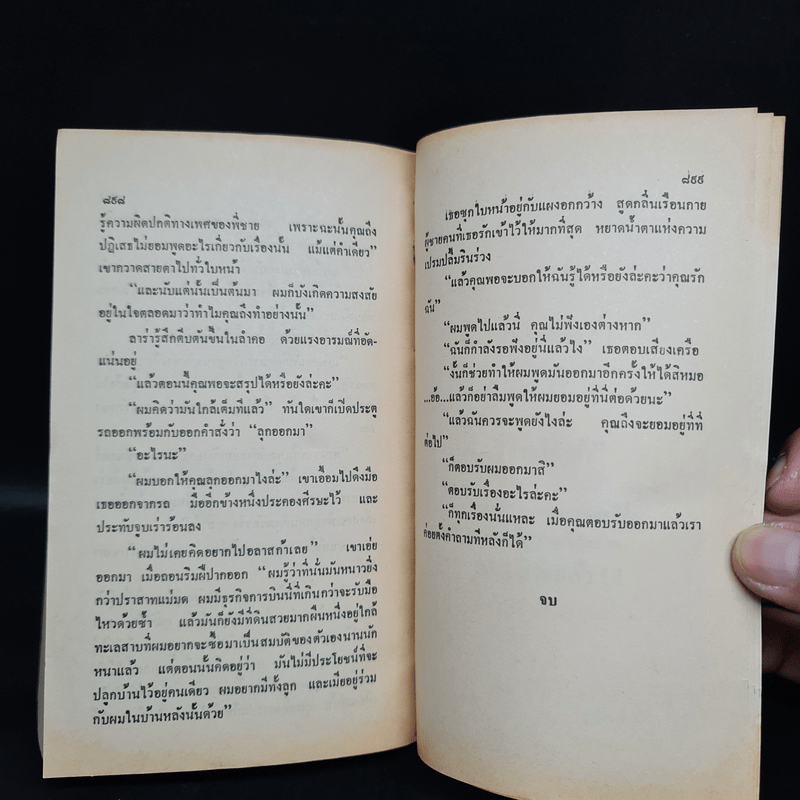 ๘๙๘
รู้ความผิดปกติทางเพศของพี่ชาย เพราะฉะนั้นคุณถึง
ปฏิเสธไม่ยอมพูดอะไรเกี่ยวกับเรื่องนั้น แม้แต่คำเดียว”
เขากวาดสายตาไปทั่วใบหน้า
“และนับแต่นั้นเป็นต้นมา ผมก็บังเกิดความสงสัย
อยู่ในใจตลอดมาว่าทำไมคุณถึงทำอย่างนั้น”
ลาร่ารู้สึกตีบตันขึ้นในลำคอ ด้วยแรงอารมณ์ที่อัด-
แน่นอยู่
“แล้วตอนนี้คุณพอจะสรุปได้หรือยังล่ะคะ”
“ผมคิดว่ามันใกล้เต็มทีแล้ว” ทันใดเขาก็เปิดประตู
รถออกพร้อมกับออกคำสั่งว่า “ลุกออกมา”
“อะไรนะ”
“ผมบอกให้คุณลุกออกมาไงล่ะ” เขาเอื้อมไปดึงมือ
เธอออกจากรถ มืออีกข้างหนึ่งประคองศีรษะไว้ และ
ประทับจูบเร่าร้อนลง
“ผมไม่เคยคิดอยากไปอลาสก้าเลย” เขาเอ่ย
ออกมา เมื่อถอนริมฝีปากออก “ผมรู้ว่าที่นั่นมันหนาวยิ่ง
กว่าปราสาทแม่มด ผมมีธุรกิจการบินที่เกินกว่าจะรับมือ
ไหวด้วยซ้ำ แล้วมันก็ยังมีที่ดินสวยมากผืนหนึ่งอยู่ใกล้
ทะเลสาบที่ผมอยากจะซื้อมาเป็นสมบัติของตัวเองนานนัก
หนาแล้ว แต่ตอนนั้นคิดอยู่ว่า มันไม่มีประโยชน์ที่จะ
ปลูกบ้านไว้อยู่คนเดียว ผมอยากมีทั้งลูก และเมียอยู่ร่วม
กับผมในบ้านหลังนั้นด้วย”
๘๙๙
เธอซุกใบหน้าอยู่กับแผงอกกว้าง สูดกลิ่นเรือนกาย
ผู้ชายคนที่เธอรักเข้าไว้ให้มากที่สุด หยาดน้ำตาแห่งความ
เปรมปลื้มรินร่วง
“แล้วคุณพอจะบอกให้ฉันรู้ได้หรือยังล่ะคะว่าคุณรัก
ฉัน”
“ผมพูดไปแล้วนี่ คุณไม่ฟังเองต่างหาก”
“ฉันก็กำลังรอฟังอยู่นี่แล้วไง” เธอตอบเสียงเครือ
“งั้นก็ช่วยทำให้ผมพูดมันออกมาอีกครั้งให้ได้สิหมอ
...อ้อ...แล้วก็อย่าลืมพูดให้ผมยอมอยู่ที่นี่ต่อด้วยนะ”
“แล้วฉันควรจะพูดยังไงล่ะ คุณถึงจะยอมอยู่ที่นี่
ต่อไป”
“ก็ตอบรับผมออกมาสิ”
“ตอบรับเรื่องอะไรล่ะคะ”
“ก็ทุกเรื่องนั่นแหละ เมื่อคุณตอบรับออกมาแล้วเรา
ค่อยตั้งคำถามทีหลังก็ได้”
จบ